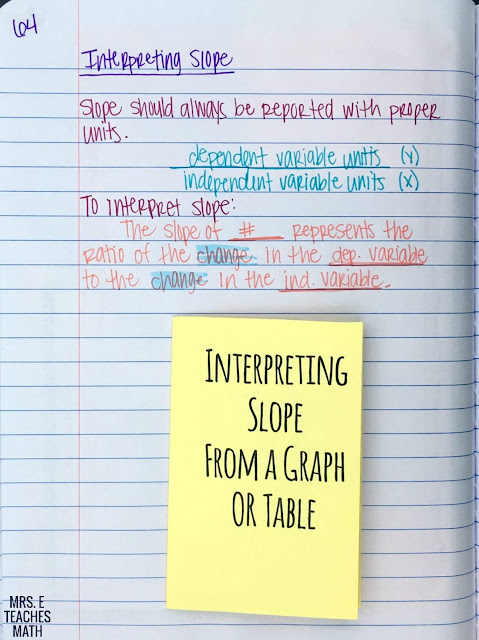 64
Interpreting Slope
Slope should always be reported with proper
units.
dependent variable units (y)
independent variable units (x)
To interpret slope:
The slope of # represents the
ratio of the change in the dep. variable
to the change in the ind. variable.
INTERPRETING
SLOPE
FROM A GRAPH
OR TABLE
MRS. E
TEACHES
MATH